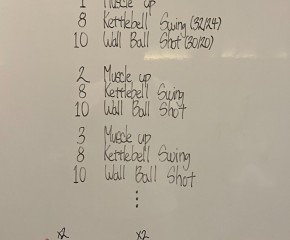 1 Muscle up
8 Kettlebell Swing (32/24)
10 Wall Ball Shot (30/20)
2 Muscle up
8 Kettlebell Swing
10 Wall Ball Shot
3 Muscle up
8 Kettlebell Swing
10 Wall Ball Shot
⋮
x2 x2